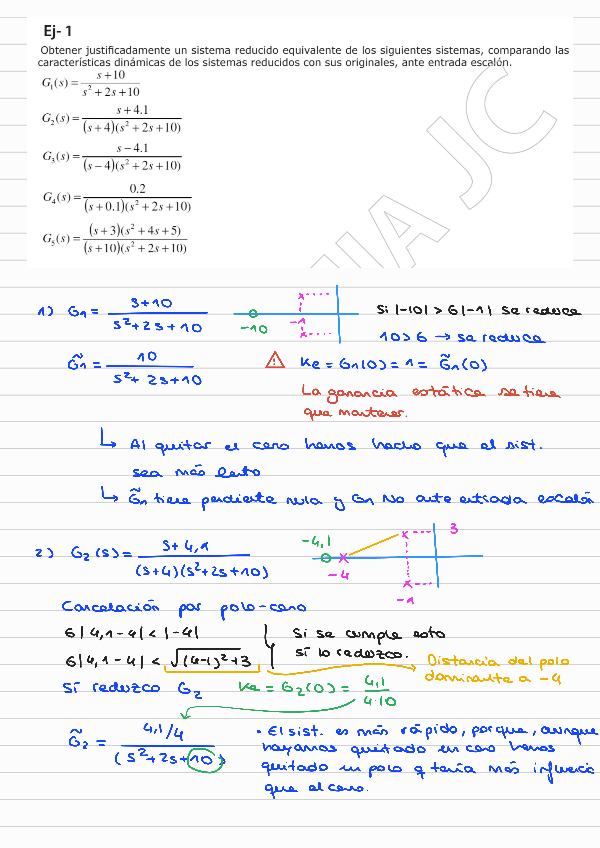 Ej- 1
Obtener justificadamente un sistema reducido equivalente de los siguientes sistemas, comparando las
características dinámicas de los sistemas reducidos con sus originales, ante entrada escalón.
G₁(s) = (s+10)/(s²+2s+10)
G₂(s) = (s+4.1)/((s+4)(s²+2s+10))
G₃(s) = (s−4.1)/((s−4)(s²+2s+10))
G₄(s) = 0.2/((s+0.1)(s²+2s+10))
G₅(s) = ((s+3)(s²+4s+5))/((s+10)(s²+2s+10))
IA JC
1) G₁ = (s+10)/(s²+2s+10)
-10
-1
Si |-10| > 6|-1| se reduce
10>6 → se reduce
G̃₁ = 10/(s²+2s+10)
⚠ Ke = G₁(0) = 1 = G̃₁(0)
La ganancia estática se tiene
que mantener.
↳ Al quitar el cero hemos hecho que el sist.
sea más lento
↳ G̃₁ tiene pendiente nula y G₁ NO ante entrada escalón
2) G₂(s) = (s+4,1)/((s+4)(s²+2s+10))
-4,1
-4
3
-1
Cancelación por polo-cero
6|4,1-4| < |-4|
6|4,1-4| < √((4-1)²+3
Si se cumple esto
sí lo reduzco.
Distancia del polo
dominante a -4
Sí reduzco G₂
Ke = G₂(0) = 4,1/(4·10)
G̃₂ = (4,1/4)/(s²+2s+10)
· El sist. es más rápido, porque, aunque
hayamos quitado un cero hemos
quitado un polo q tenía más influencia
que el cero.